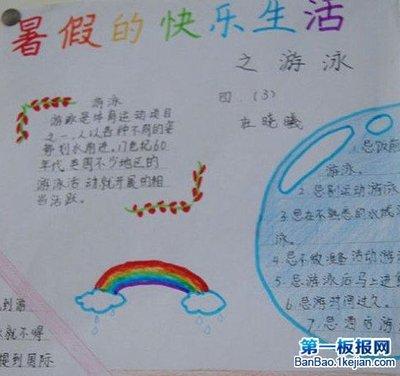 暑假的快乐生活
之游泳
四、(3)
晓曦
游泳
游泳是体育运动项目
之一,人以各种不同的姿
势划水前进。17世纪60
年代英国不少地区的
游泳活动就开展的相
当活跃。
1.忌饭前
游泳。
2.忌剧运动游泳
3.忌在不熟悉的水域游
泳。
4.忌不做准备活动游
5.忌游泳后马上进
6.忌游时间过久。
7.忌酒后游
到游
就不得
提到国际
第一板报网
BanBao.1kejian.com